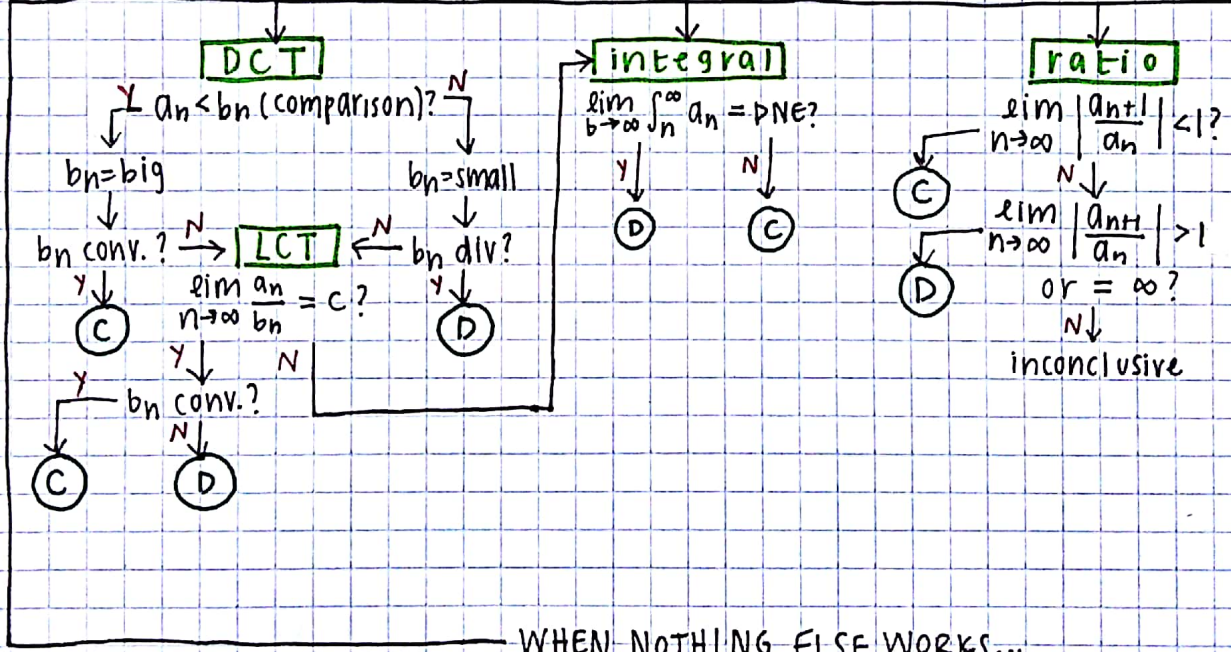 DCT
Y an < bn (comparison)? N
bn = big
bn = small
bn conv.? N
LCT
N bn div?
Y
C
lim n→∞ an/bn = C?
Y
D
Y
N
Y bn conv.?
N
C
D
integral
lim b→∞ ∫n^∞ an = DNE?
Y
N
D
C
ratio
lim n→∞ |an+1/an| < 1?
C
N
lim n→∞ |an+1/an| > 1
D
or = ∞?
N
inconclusive
WHEN NOTHING ELSE WORKS...